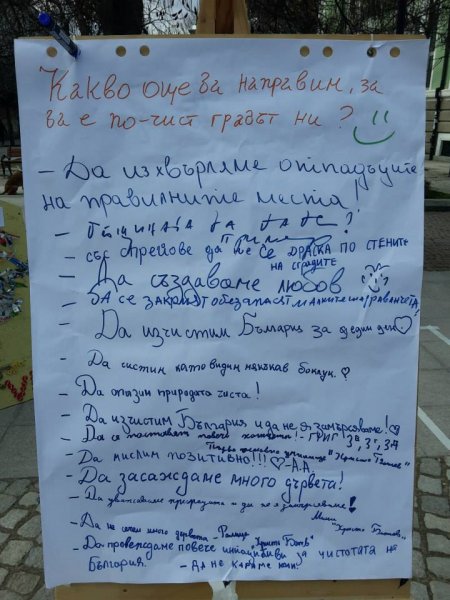 Какво още да направим, за
да е по-чист градът ни?
- Да изхвърляме отпадъците
на правилните места!
- със спрейове да не се драска по стените
на сградите
- Да създаваме любов
- Да се закрият обезопасят малките
- Да изчистим България за един ден
- Да чистим като видим някъкав боклук.
- Да опазим природата чиста!
- Да изчистим България и да не я замърсяваме!
- Да се поставят повече кошчета! - 3в, 3г, 3д
"Христо Ботев"
- Да мислим позитивно!!! - А.А.
- Да засаждаме много дървета!
- Да уважаваме природата и да не я замърсяваме!
"Христо Ботев"
- Да не сечем много дървета - "Христо Ботев"
- Да провеждаме повече инициативи за чистотата на
България. - Да не караме коли!